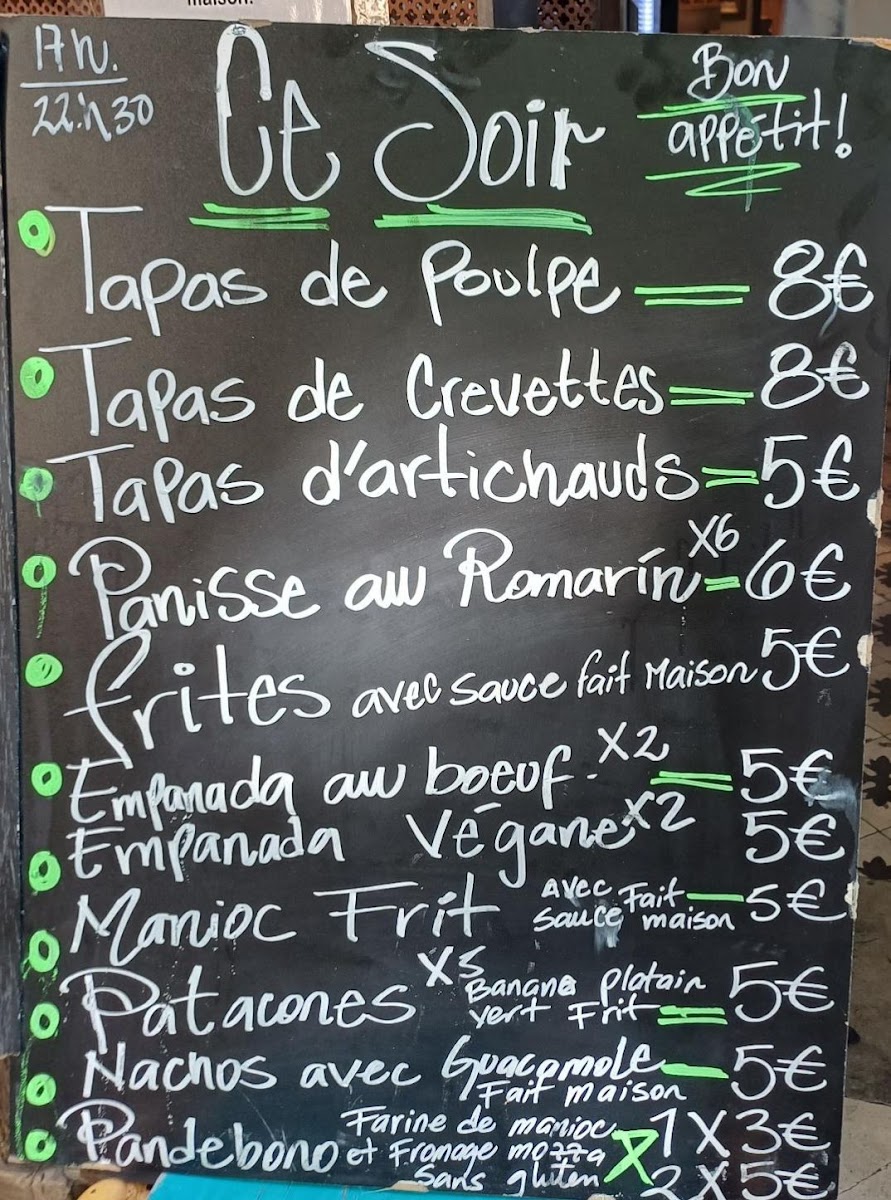 maison.
17h.
22:h30
Ce Soir
Bon
appétit!
Tapas de Poulpe = 8€
Tapas de Crevettes = 8€
Tapas d'artichauds = 5€
Panisse au Romarin x6 = 6€
frites avec sauce fait Maison 5€
Empanada au boeuf. x2 = 5€
Empanada Végane x2 5€
Manioc Frit avec sauce Fait maison - 5€
Patacones x5 Banane platain vert Frit = 5€
Nachos avec Guacamole - 5€
Fait maison
Pandebono Farine de manioc et Fromage mozza sans gluten 1 X 3€
2 x 5€